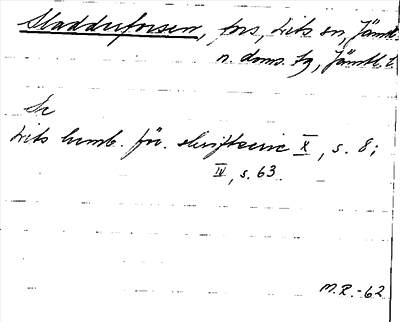 Sladderforsen, fors, Lits sn, Jämtl.
n. doms. sg, Jämtl. l.
Se
Lits hemb. för. skriftserie X, s. 8;
IV, s. 63.
M.R.-62